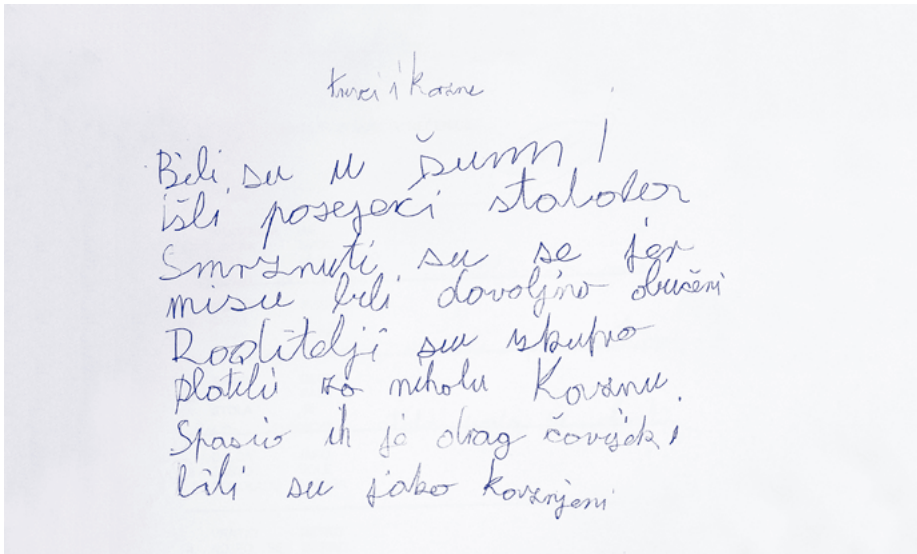 i kazne
Bili su u šumi
išli posejeći stabala
Smrznuti su se jer
nisu bili dovoljno obučeni
Roditelji su skupo
platili za nihalu Kaznu.
Spasio ih je drag čovijek,
bili su jako kaznjeni